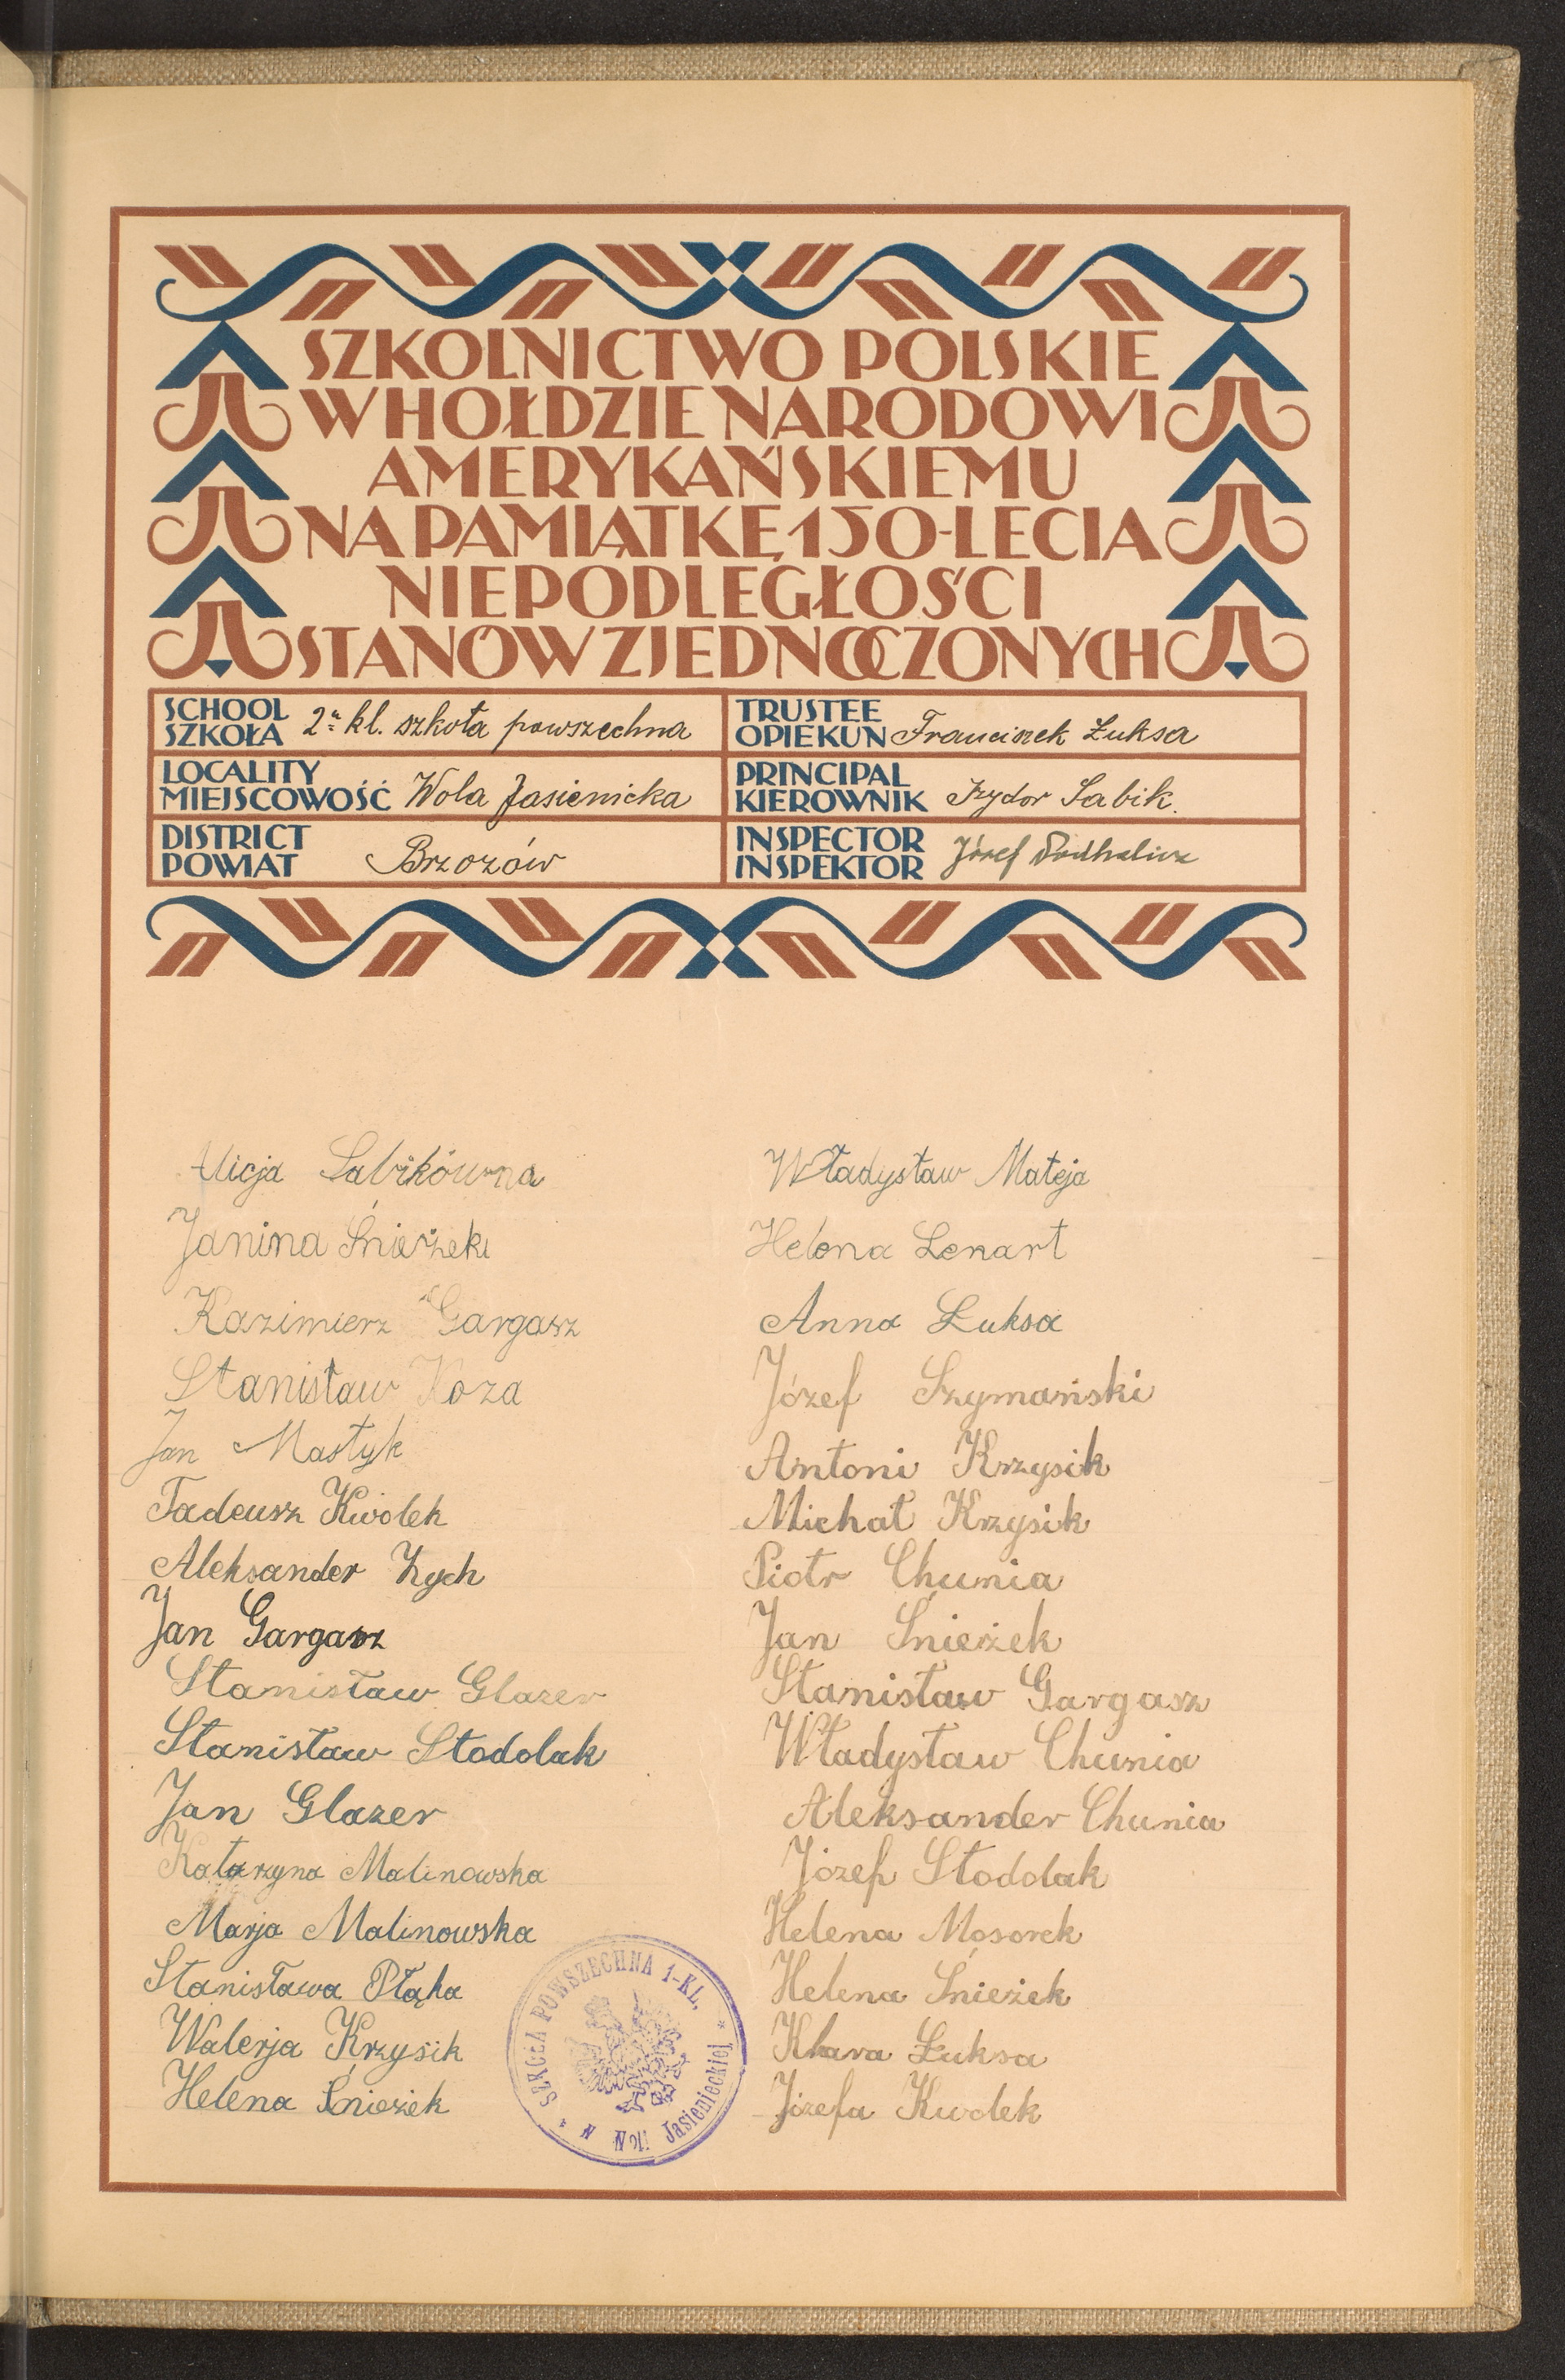 SZKOLNICTWO POLSKIE
W HOŁDZIE NARODOWI
AMERYKAŃSKIEMU
NA PAMIĄTKĘ 150-LECIA
NIEPODLEGŁOŚCI
STANÓW ZJEDNOCZONYCH
SCHOOL
SZKOŁA 2-kl. szkoła powszechna
TRUSTEE
OPIEKUN Franciszek Łuksa
LOCALITY
MIEJSCOWOŚĆ Wola Jasienicka
PRINCIPAL
KIEROWNIK Izydor Sabik.
DISTRICT
POWIAT Brzozów
INSPECTOR
INSPEKTOR Józef
Alicja Sabikówna
Janina Śnieżek
Kazimierz Gargasz
Stanisław Koza
Jan Mastyk
Tadeusz Kwolek
Aleksander Zych
Jan Gargasz
Stanisław Glazer
Stanisław Stodolak
Jan Glazer
Katarzyna Malinowska
Marja Malinowska
Stanisława Płąka
Walerja Krzysik
Helena Śnieżek
Władysław Mateja
Helena Lenart
Anna Łuksa
Józef Szymański
Antoni Krzysik
Michał Krzysik
Piotr Chunia
Jan Śnieżek
Stanisław Gargasz
Władysław Chunia
Aleksander Chunia
Józef Stodolak
Helena Mosorek
Helena Śnieżek
Klara Łuksa
Józefa Kwolek
* SZKOŁA POWSZECHNA 1-KL. *
w Woli Jasienieckiej